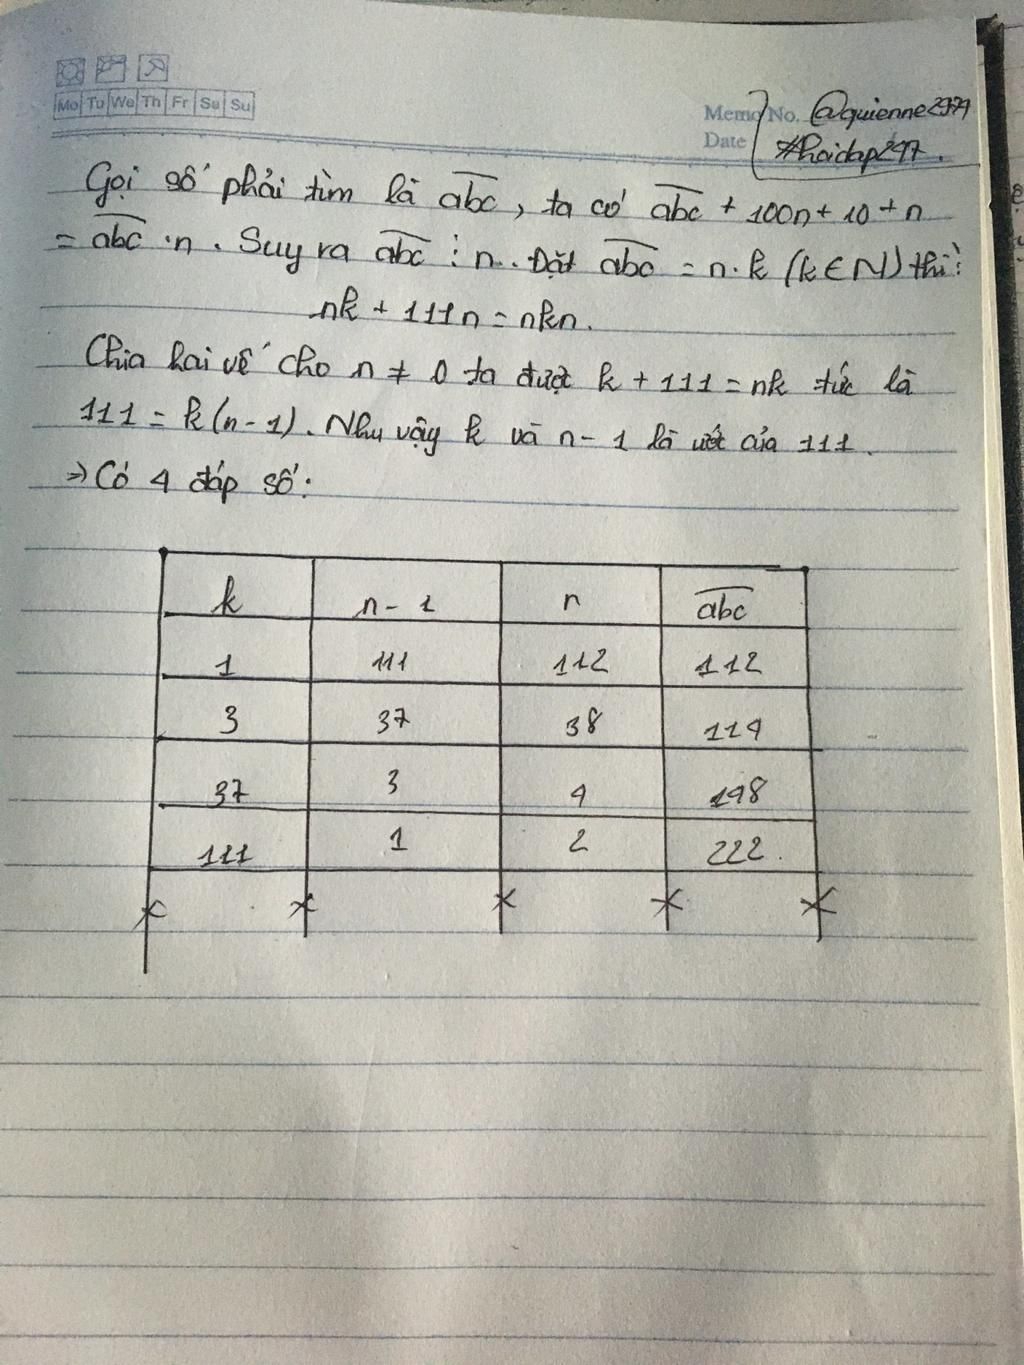 Mo Tu We Th Fr Sa Su
Memo No. @quienne2979
Date #hoidap247.
Gọi số phải tìm là abc, ta có abc + 100n + 10 + n
= abc . n . Suy ra abc ⋮ n.. Đặt abc = n. k (k ∈ N) thì:
nk + 111n = nkn.
Chia hai vế cho n ≠ 0 ta được k + 111 = nk tức là
111 = k(n - 1). Như vậy k và n - 1 là ước của 111.
=> Có 4 đáp số:
k n - 1 n abc
1 111 112 112
3 37 38 114
37 3 4 148
111 1 2 222.